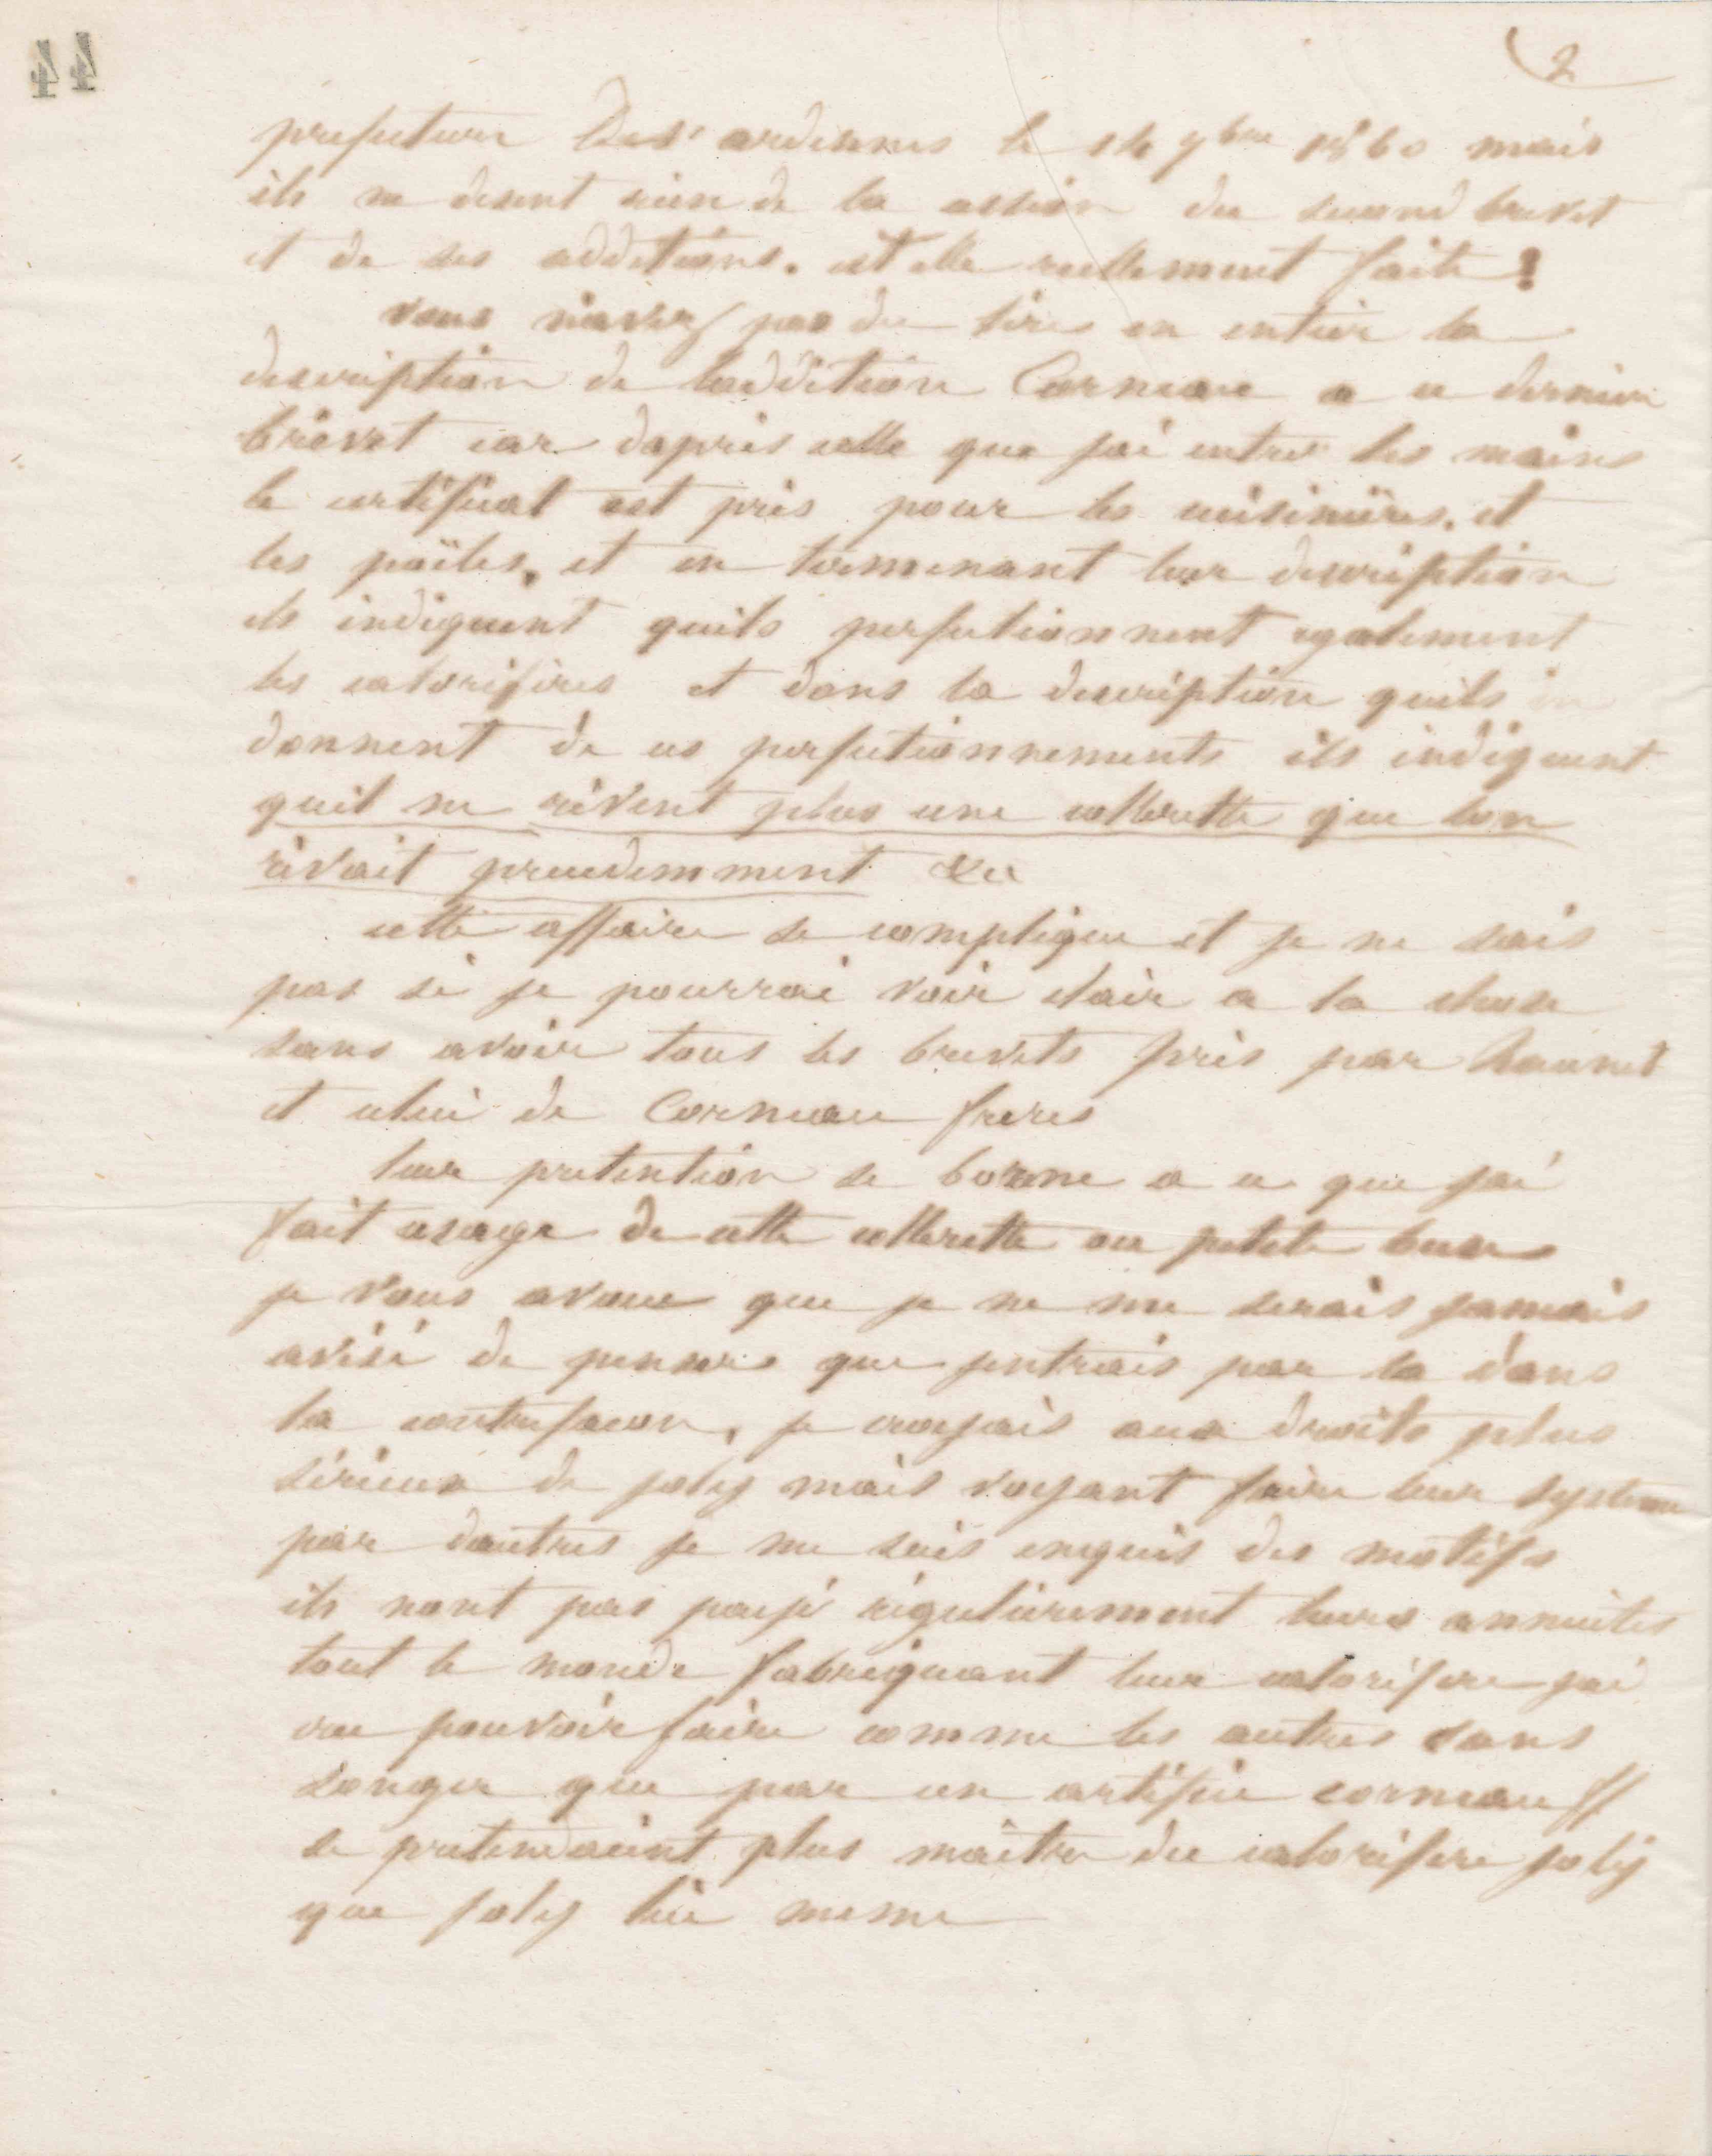 44
2
prefecture Des ardennes le 14 9bre 1860 mais
ils ne disent rien de la cession du second brevet
et de ses additions. est elle reellement faite ?
vous n'avez pas du lire en entier la
description de laddition Corneau a ce dernier
brevet car dapres celle que jai entre les mains
le certificat est pris pour les cuisinières. et
les poëles, et en terminant leur description
ils indiquent quils perfectionnent egalement
les calorifères et dans la description quils en
donnent de ces perfectionnements ils indiquent
quil ne rivent plus une collerette que lon
rivait precedemment &a
cette affaire se complique et je ne sais
pas si je pourrai voir clair a la chose
sans avoir tous les brevets pris par
et celui de Corneau freres
leur pretention se borne a ce que jai
fait usage de cette collerette ou petite buse
je vous avoue que je ne me serais jamais
avisé de penser que jentrais par la dans
la contrefacon, je croyais aux droits plus
sérieux de joly mais voyant faire leur systeme
par dautres je me suis enquis des motifs
ils nont pas payé régulièrement leurs annuites
tout le monde fabriquant leur calorifere jai
cru pouvoir faire comme les autres sans
songer que par un artifice corneau ff
se pretendaient plus maître du calorifere joly
que joly lui meme